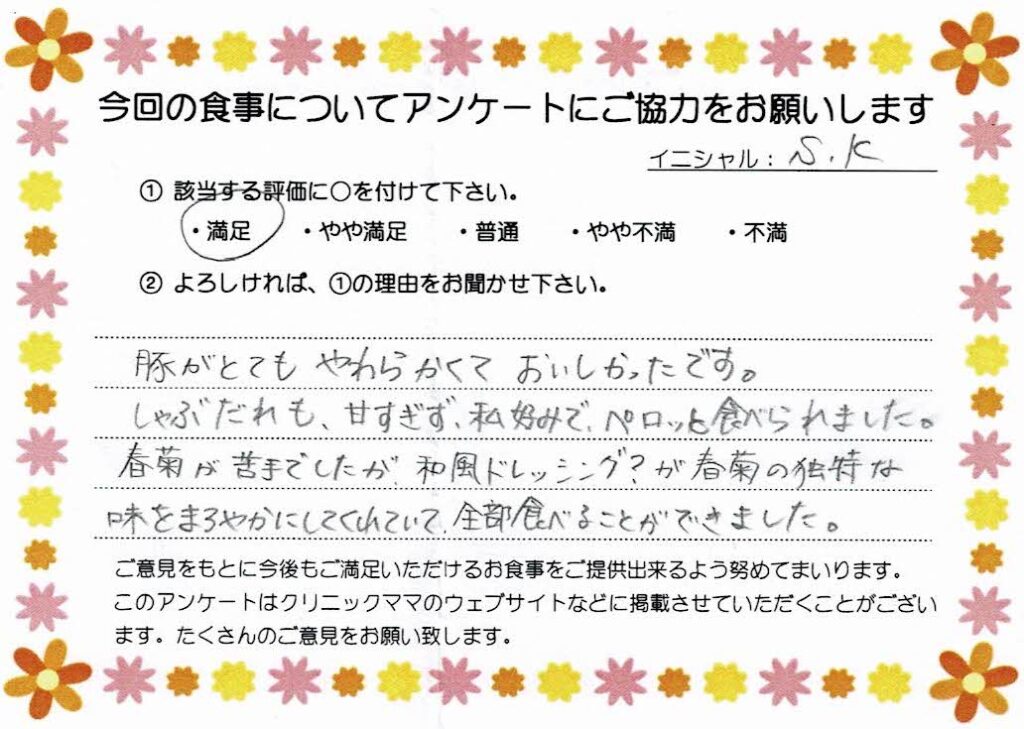 今回の食事についてアンケートにご協力をお願いします
イニシャル：S.K
① 該当する評価に〇を付けて下さい。
・満足 ・やや満足 ・普通 ・やや不満 ・不満
② よろしければ、①の理由をお聞かせ下さい。
豚がとても やわらかくて おいしかったです。
しゃぶだれも、甘すぎず、私好みで、ペロッと食べられました。
春菊が苦手でしたが、和風ドレッシング?が春菊の独特な
味をまろやかにしてくれていて、全部食べることができました。
ご意見をもとに今後もご満足いただけるお食事をご提供出来るよう努めてまいります。
このアンケートはクリニックママのウェブサイトなどに掲載させていただくことがござい
ます。たくさんのご意見をお願い致します。